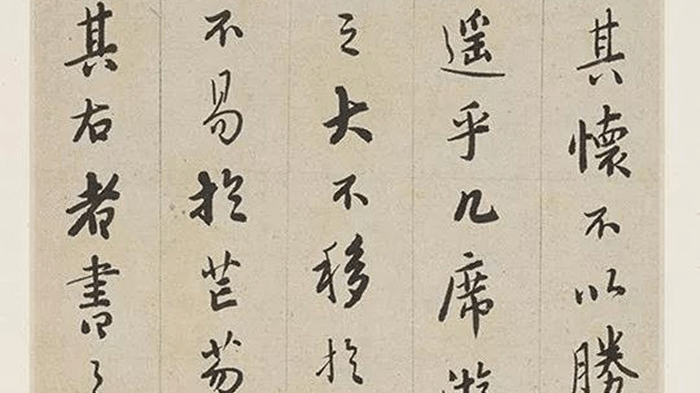 其懷不以勝
遥乎几席游
之大不移於
不易於芒芴
其右者書之